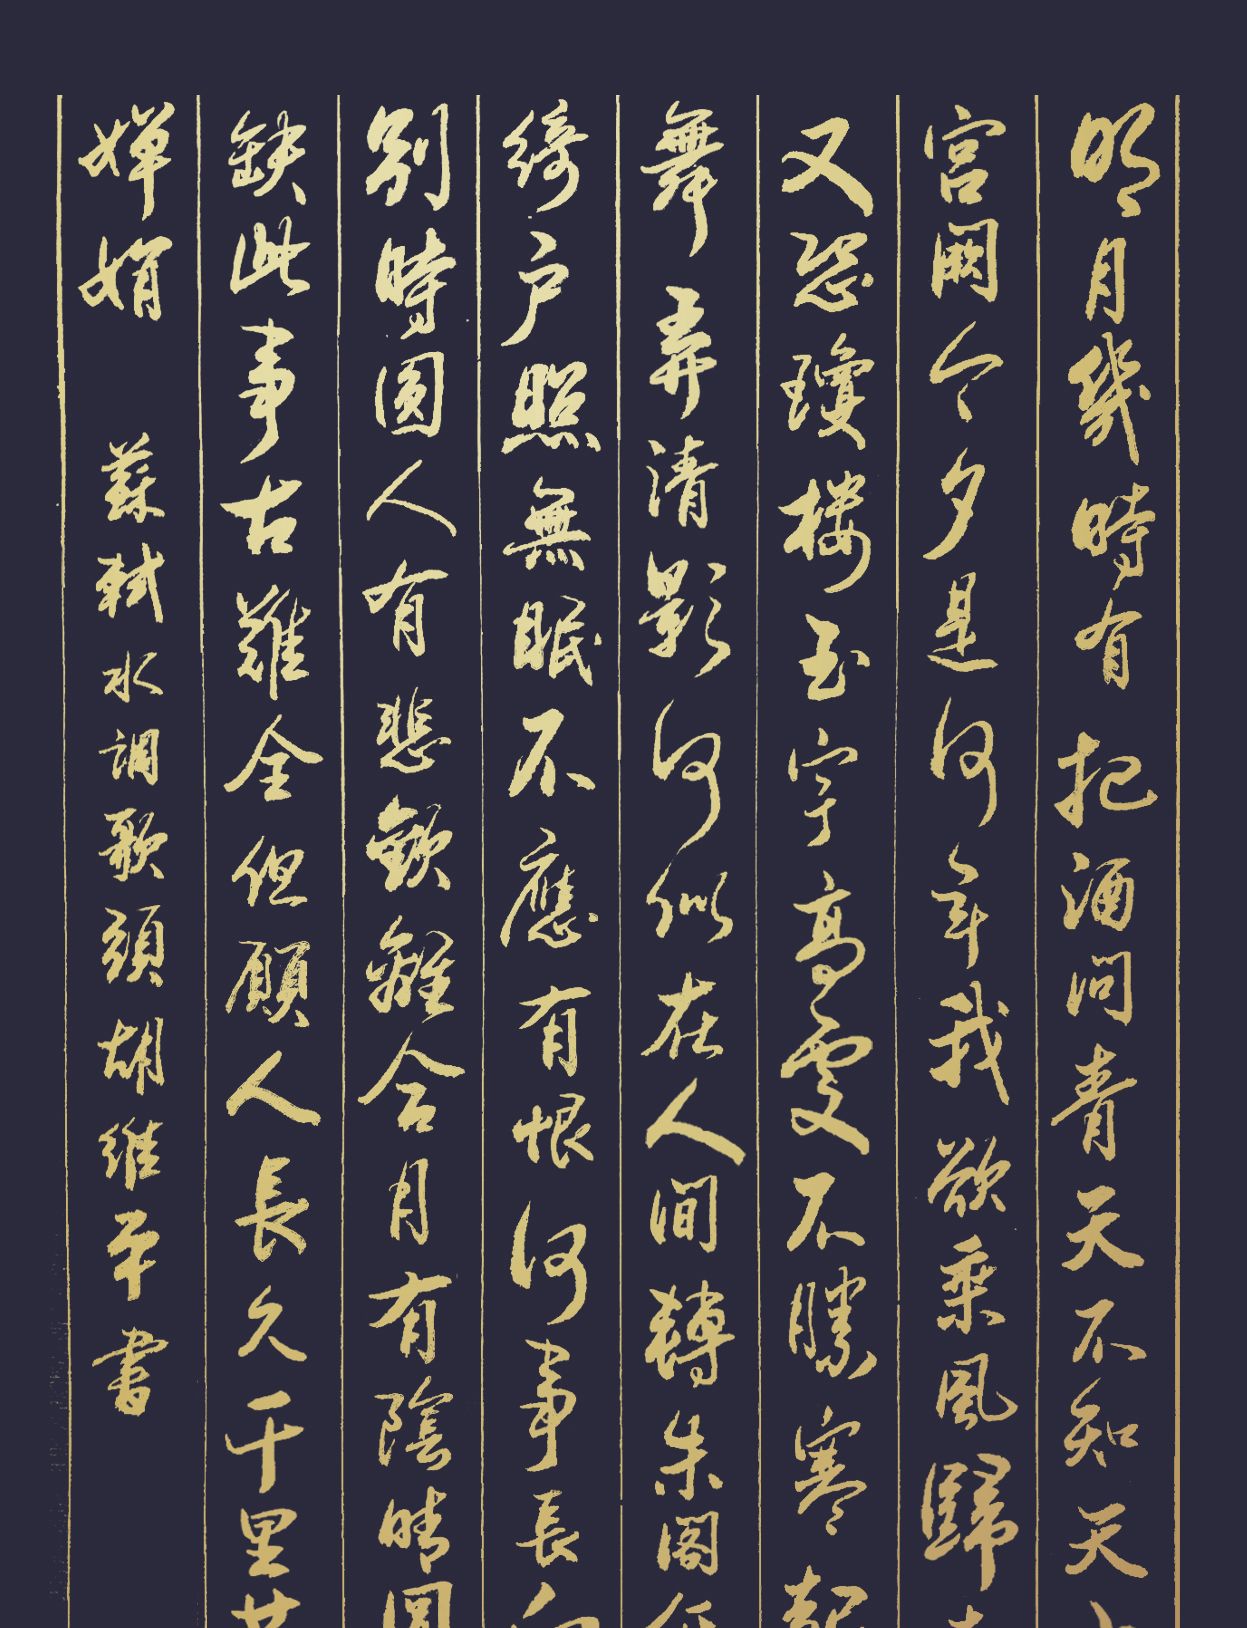 明月幾時有把酒問青天不知天上
宮闕今夕是何年我欲乘風歸去
又恐瓊樓玉宇高處不勝寒起
舞弄清影何似在人間轉朱閣低
綺户照無眠不應有恨何事長向
別時圓人有悲歡離合月有陰晴圓
缺此事古難全但願人長久千里共
嬋娟
蘇軾水調歌頭胡維平書